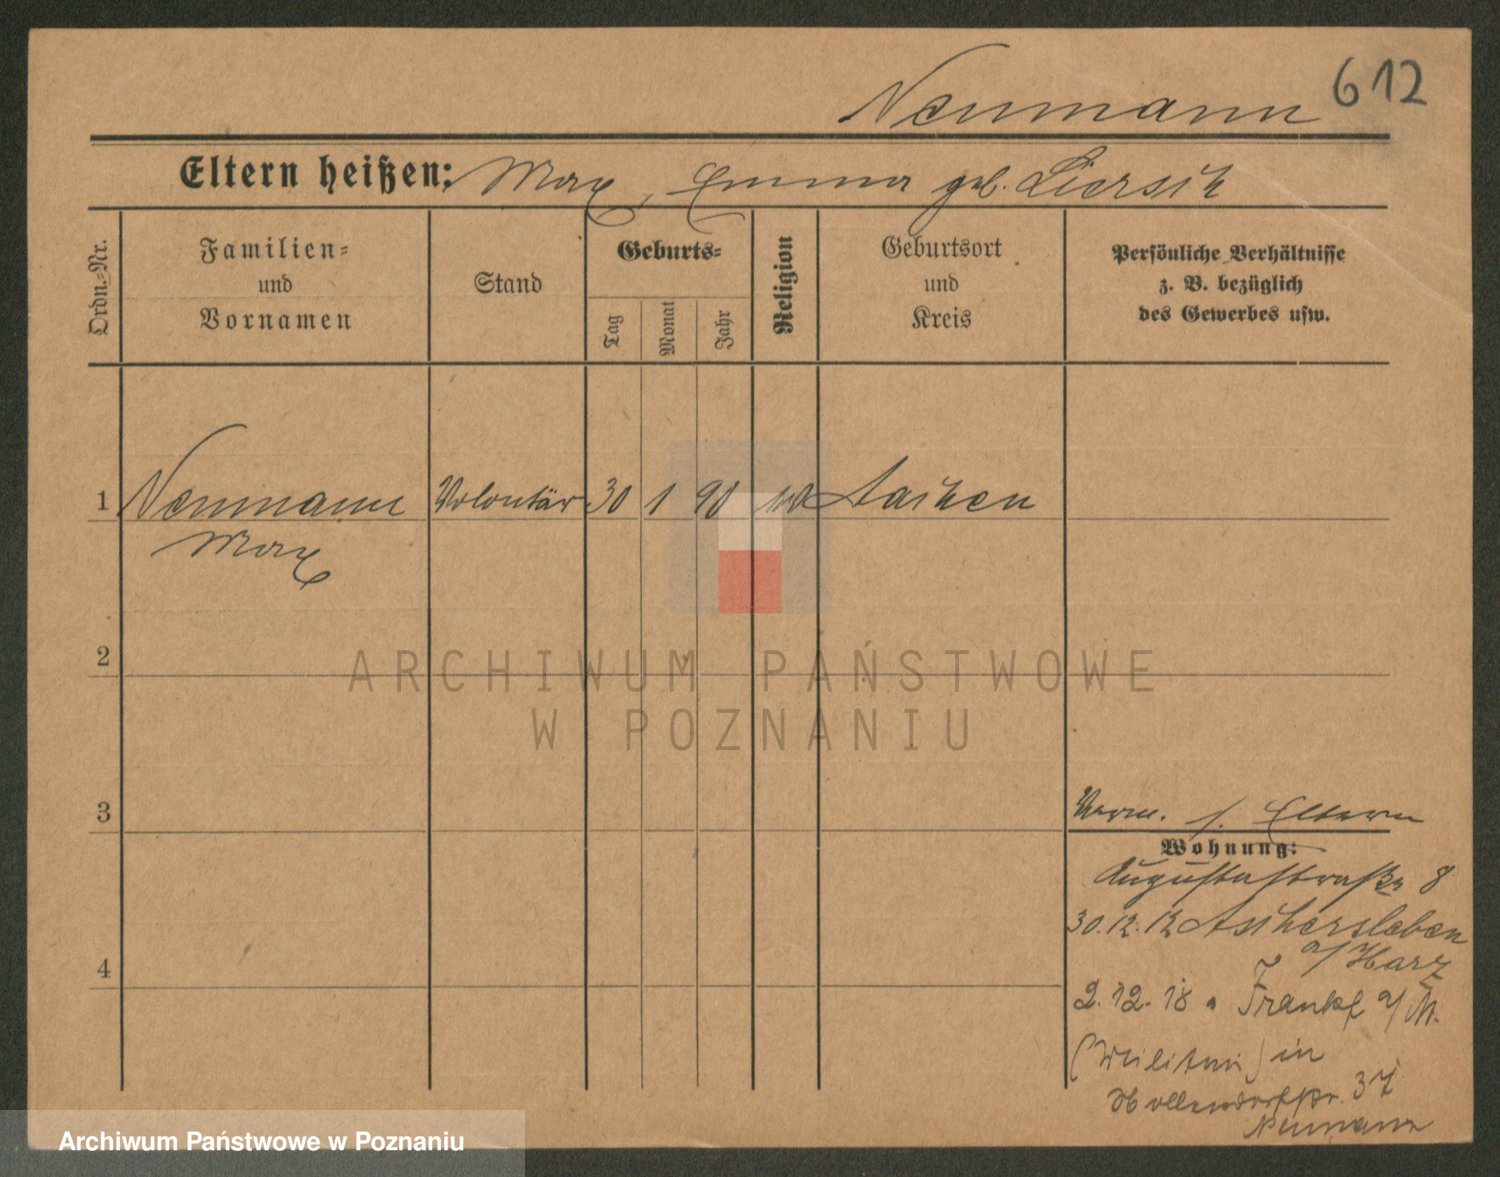 Neumann 612
Eltern heißen: Max, Emma geb. Liersch
Ordn.=Nr.
Familien=
und
Vornamen
Stand
Geburts=
Tag
Monat
Jahr
Religion
Geburtsort
und
Kreis
Persönliche Verhältnisse
z. B. bezüglich
des Gewerbes usw.
1 Neumann Volontär 30 1 90 Aachen
Max
2
ARCHIWUM PAŃSTWOWE
W POZNANIU
3
Verm. s. Eltern
Wohnung:
Augustastraße 8
30.12.12 Aschersleben
a/Harz
4
2.12.18 Frankf a/M.
(Militär) in
37
Neumann
Archiwum Państwowe w Poznaniu